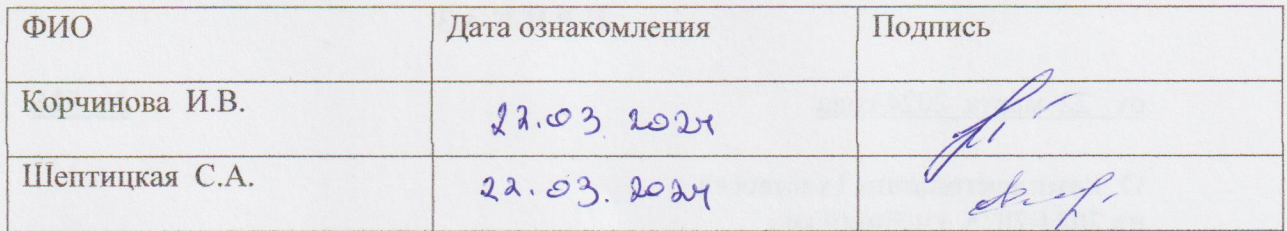 ФИО Дата ознакомления Подпись
Корчинова И.В. 22.03.2024
Шептицкая С.А. 22.03.2024